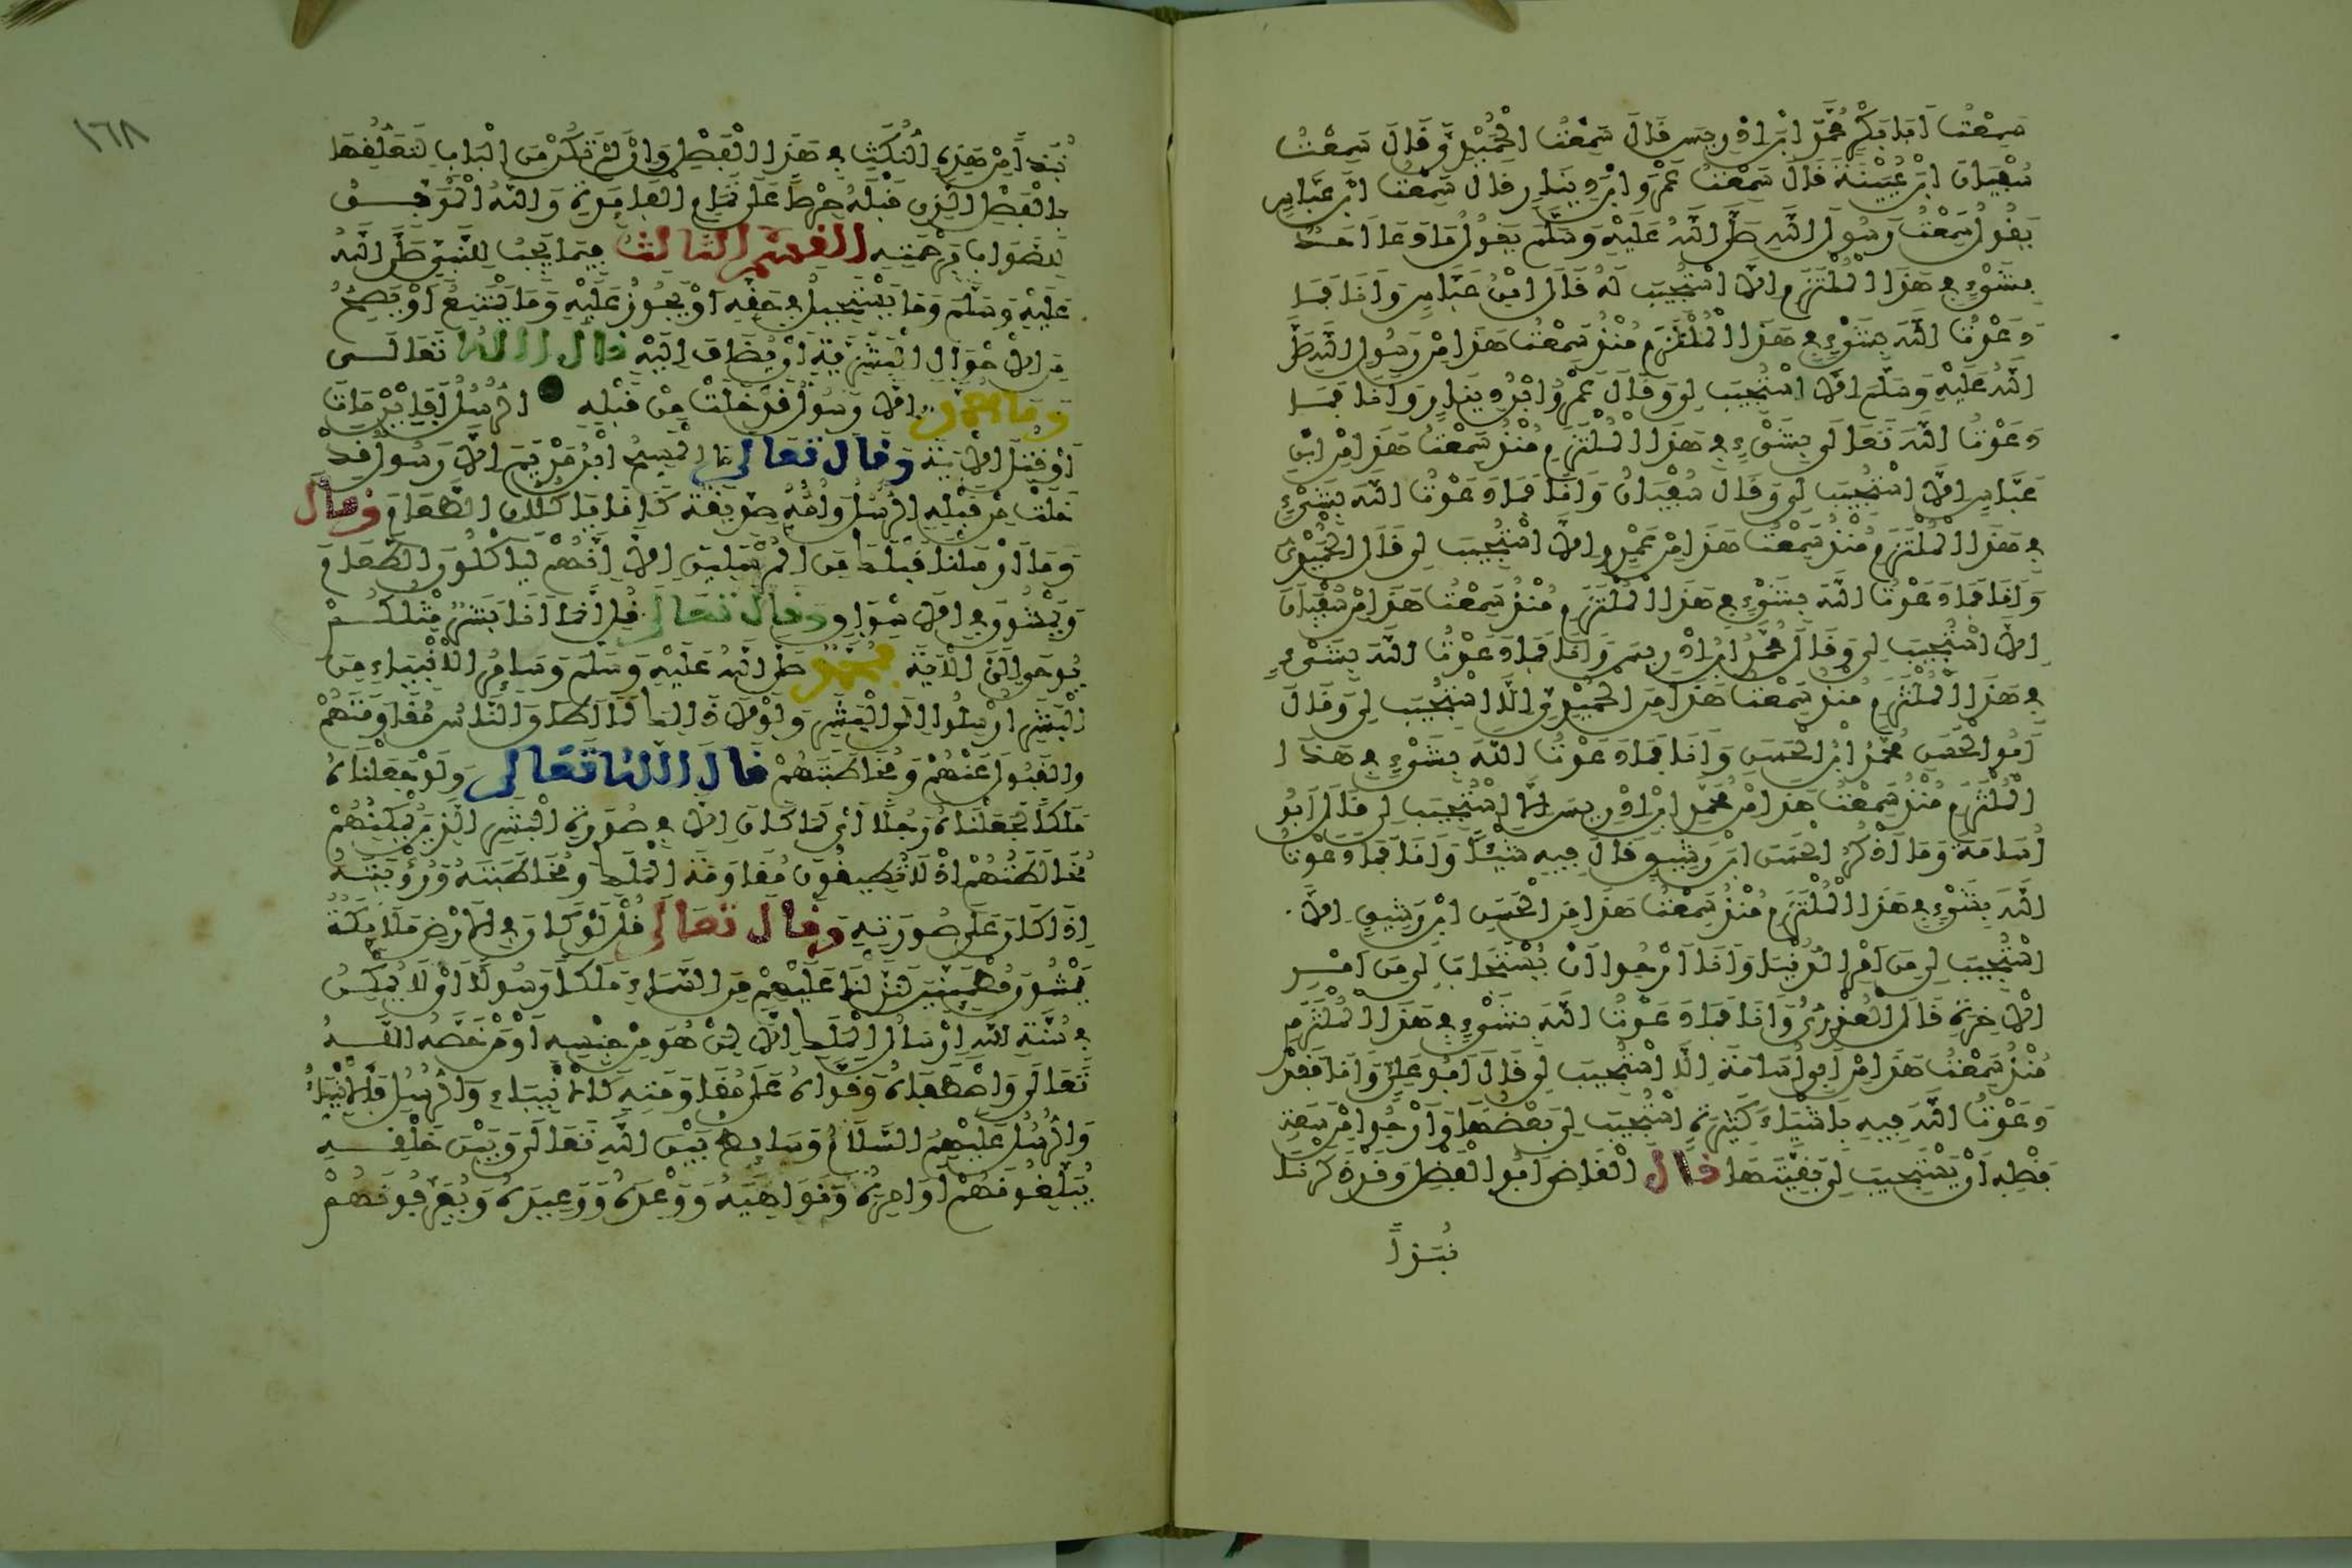 سَمِعْتُ أَبَا بَكْرٍ مُحَمَّدَ ابْنَ إِدْرِيسَ قَالَ سَمِعْتُ الْحُمَيْدِيَّ قَالَ سَمِعْتُ
سُفْيَانَ ابْنَ عُيَيْنَةَ قَالَ سَمِعْتُ عَمْرَو ابْنَ دِينَارٍ قَالَ سَمِعْتُ ابْنَ عَبَّاسٍ
يَقُولُ سَمِعْتُ رَسُولَ اللَّهِ صَلَّى اللَّهُ عَلَيْهِ وَسَلَّمَ يَقُولُ مَا دَعَا أَحَدٌ
بِشَيْءٍ فِي هَذَا الْمُلْتَزَمِ إِلَّا اسْتُجِيبَ لَهُ قَالَ ابْنُ عَبَّاسٍ وَأَنَا فَمَا
دَعَوْتُ اللَّهَ بِشَيْءٍ فِي هَذَا الْمُلْتَزَمِ مُنْذُ سَمِعْتُ هَذَا مِنْ رَسُولِ اللَّهِ صَلَّى
اللَّهُ عَلَيْهِ وَسَلَّمَ إِلَّا اسْتُجِيبَ لِي وَقَالَ عَمْرُو ابْنُ دِينَارٍ وَأَنَا فَمَا
دَعَوْتُ اللَّهَ تَعَالَى بِشَيْءٍ فِي هَذَا الْمُلْتَزَمِ مُنْذُ سَمِعْتُ هَذَا مِنِ ابْنِ
عَبَّاسٍ إِلَّا اسْتُجِيبَ لِي وَقَالَ سُفْيَانُ وَأَنَا فَمَا دَعَوْتُ اللَّهَ بِشَيْءٍ
فِي هَذَا الْمُلْتَزَمِ مُنْذُ سَمِعْتُ هَذَا مِنْ عَمْرٍو إِلَّا اسْتُجِيبَ لِي قَالَ الْحُمَيْدِيُّ
وَأَنَا فَمَا دَعَوْتُ اللَّهَ بِشَيْءٍ فِي هَذَا الْمُلْتَزَمِ مُنْذُ سَمِعْتُ هَذَا مِنْ سُفْيَانَ
إِلَّا اسْتُجِيبَ لِي وَقَالَ مُحَمَّدُ ابْنُ إِدْرِيسَ وَأَنَا فَمَا دَعَوْتُ اللَّهَ بِشَيْءٍ
فِي هَذَا الْمُلْتَزَمِ مُنْذُ سَمِعْتُ هَذَا مِنَ الْحُمَيْدِيِّ إِلَّا اسْتُجِيبَ لِي وَقَالَ
أَبُو الْحَسَنِ مُحَمَّدُ ابْنُ الْحَسَنِ وَأَنَا فَمَا دَعَوْتُ اللَّهَ بِشَيْءٍ فِي هَذَا
الْمُلْتَزَمِ مُنْذُ سَمِعْتُ هَذَا مِنْ مُحَمَّدِ ابْنِ إِدْرِيسَ إِلَّا اسْتُجِيبَ لِي قَالَ أَبُو
أُسَامَةَ وَمَا أَذْكُرُ الْحَسَنَ ابْنَ رَشِيقٍ قَالَ فِيهِ شَيْئًا وَأَنَا فَمَا دَعَوْتُ
اللَّهَ بِشَيْءٍ فِي هَذَا الْمُلْتَزَمِ مُنْذُ سَمِعْتُ هَذَا مِنَ الْحَسَنِ ابْنِ رَشِيقٍ إِلَّا
اسْتُجِيبَ لِي مِنْ أَمْرِ الدُّنْيَا وَأَنَا أَرْجُوا أَنْ يُسْتَجَابَ لِي مِنْ أَمْرِ
الْآخِرَةِ قَالَ الْعُذْرِيُّ وَأَنَا فَمَا دَعَوْتُ اللَّهَ بِشَيْءٍ فِي هَذَا الْمُلْتَزَمِ
مُنْذُ سَمِعْتُ هَذَا مِنْ أَبِي أُسَامَةَ إِلَّا اسْتُجِيبَ لِي قَالَ أَبُو عَلِيٍّ وَأَنَا فَقَدْ
دَعَوْتُ اللَّهَ فِيهِ بِأَشْيَاءَ كَثِيرَةٍ اسْتُجِيبَ لِي بَعْضُهَا وَأَرْجُوا مِنْ سَعَةِ
فَضْلِهِ أَنْ يَسْتَجِيبَ لِي بَقِيَّتَهَا قَالَ الْقَاضِي أَبُو الْفَضْلِ وَقَدْ ذَكَرْنَا
نُبَذًا
١٦٨
نُبَذًا مِنْ هَذِهِ النُّكَتِ فِي هَذَا الْفَصْلِ وَإِنْ لَمْ تَكُنْ مِنَ الْبَابِ لِتَعَلُّقِهَا
بِالْفَصْلِ الَّذِي قَبْلَهُ حِرْصًا عَلَى تَمَامِ الْفَائِدَةِ وَاللَّهُ الْمُوَفِّقُ
لِلصَّوَابِ بِرَحْمَتِهِ الْقِسْمُ الثَّالِثُ فِيمَا يَجِبُ لِلنَّبِيِّ صَلَّى اللَّهُ
عَلَيْهِ وَسَلَّمَ وَمَا يَسْتَحِيلُ فِي حَقِّهِ أَوْ يَجُوزُ عَلَيْهِ وَمَا يَمْتَنِعُ أَوْ يَصِحُّ
مِنَ الْأَحْوَالِ الْبَشَرِيَّةِ أَنْ يُضَافَ إِلَيْهِ قَالَ اللَّهُ تَعَالَى
وَمَا مُحَمَّدٌ إِلَّا رَسُولٌ قَدْ خَلَتْ مِنْ قَبْلِهِ الرُّسُلُ أَفَإِنْ مَاتَ
أَوْ قُتِلَ الْآيَةَ وَقَالَ تَعَالَى مَا الْمَسِيحُ ابْنُ مَرْيَمَ إِلَّا رَسُولٌ قَدْ
خَلَتْ مِنْ قَبْلِهِ الرُّسُلُ وَأُمُّهُ صِدِّيقَةٌ كَانَا يَأْكُلَانِ الطَّعَامَ وَقَالَ
وَمَا أَرْسَلْنَا قَبْلَكَ مِنَ الْمُرْسَلِينَ إِلَّا إِنَّهُمْ لَيَأْكُلُونَ الطَّعَامَ
وَيَمْشُونَ فِي الْأَسْوَاقِ وَقَالَ تَعَالَى قُلْ إِنَّمَا أَنَا بَشَرٌ مِثْلُكُمْ
يُوحَى إِلَيَّ الْآيَةَ فَمُحَمَّدٌ صَلَّى اللَّهُ عَلَيْهِ وَسَلَّمَ وَسَائِرُ الْأَنْبِيَاءِ مِنَ
الْبَشَرِ أُرْسِلُوا إِلَى الْبَشَرِ وَلَوْلَا ذَلِكَ لَمَا أَطَاقَ النَّاسُ مُقَاوَمَتَهُمْ
وَالْقَبُولَ عَنْهُمْ وَمُخَاطَبَتَهُمْ قَالَ اللَّهُ تَعَالَى وَلَوْ جَعَلْنَاهُ
مَلَكًا لَجَعَلْنَاهُ رَجُلًا أَيْ لَمَا كَانَ إِلَّا فِي صُورَةِ الْبَشَرِ الَّذِينَ يُمْكِنُهُمْ
مُخَالَطَتُهُمْ إِذْ لَا تُطِيقُونَ مُقَاوَمَةَ الْمَلَكِ وَمُخَاطَبَتَهُ وَرُؤْيَتَهُ
إِذَا كَانَ عَلَى صُورَتِهِ وَقَالَ تَعَالَى قُلْ لَوْ كَانَ فِي الْأَرْضِ مَلَائِكَةٌ
يَمْشُونَ مُطْمَئِنِّينَ لَنَزَّلْنَا عَلَيْهِمْ مِنَ السَّمَاءِ مَلَكًا رَسُولًا أَيْ لَا يُمْكِنُ
فِي سُنَّةِ اللَّهِ إِرْسَالُ الْمَلَكِ إِلَّا لِمَنْ هُوَ مِنْ جِنْسِهِ أَوْ مَنْ خَصَّهُ اللَّهُ
تَعَالَى وَاصْطَفَاهُ وَقَوَّاهُ عَلَى مُقَاوَمَتِهِ كَالْأَنْبِيَاءِ وَالرُّسُلِ فَالْأَنْبِيَاءُ
وَالرُّسُلُ عَلَيْهِمُ السَّلَامُ وَسَائِطُ بَيْنَ اللَّهِ تَعَالَى وَبَيْنَ خَلْقِهِ
يُبَلِّغُونَهُمْ أَوَامِرَهُ وَنَوَاهِيَهُ وَوَعْدَهُ وَوَعِيدَهُ وَيُعَرِّفُونَهُمْ